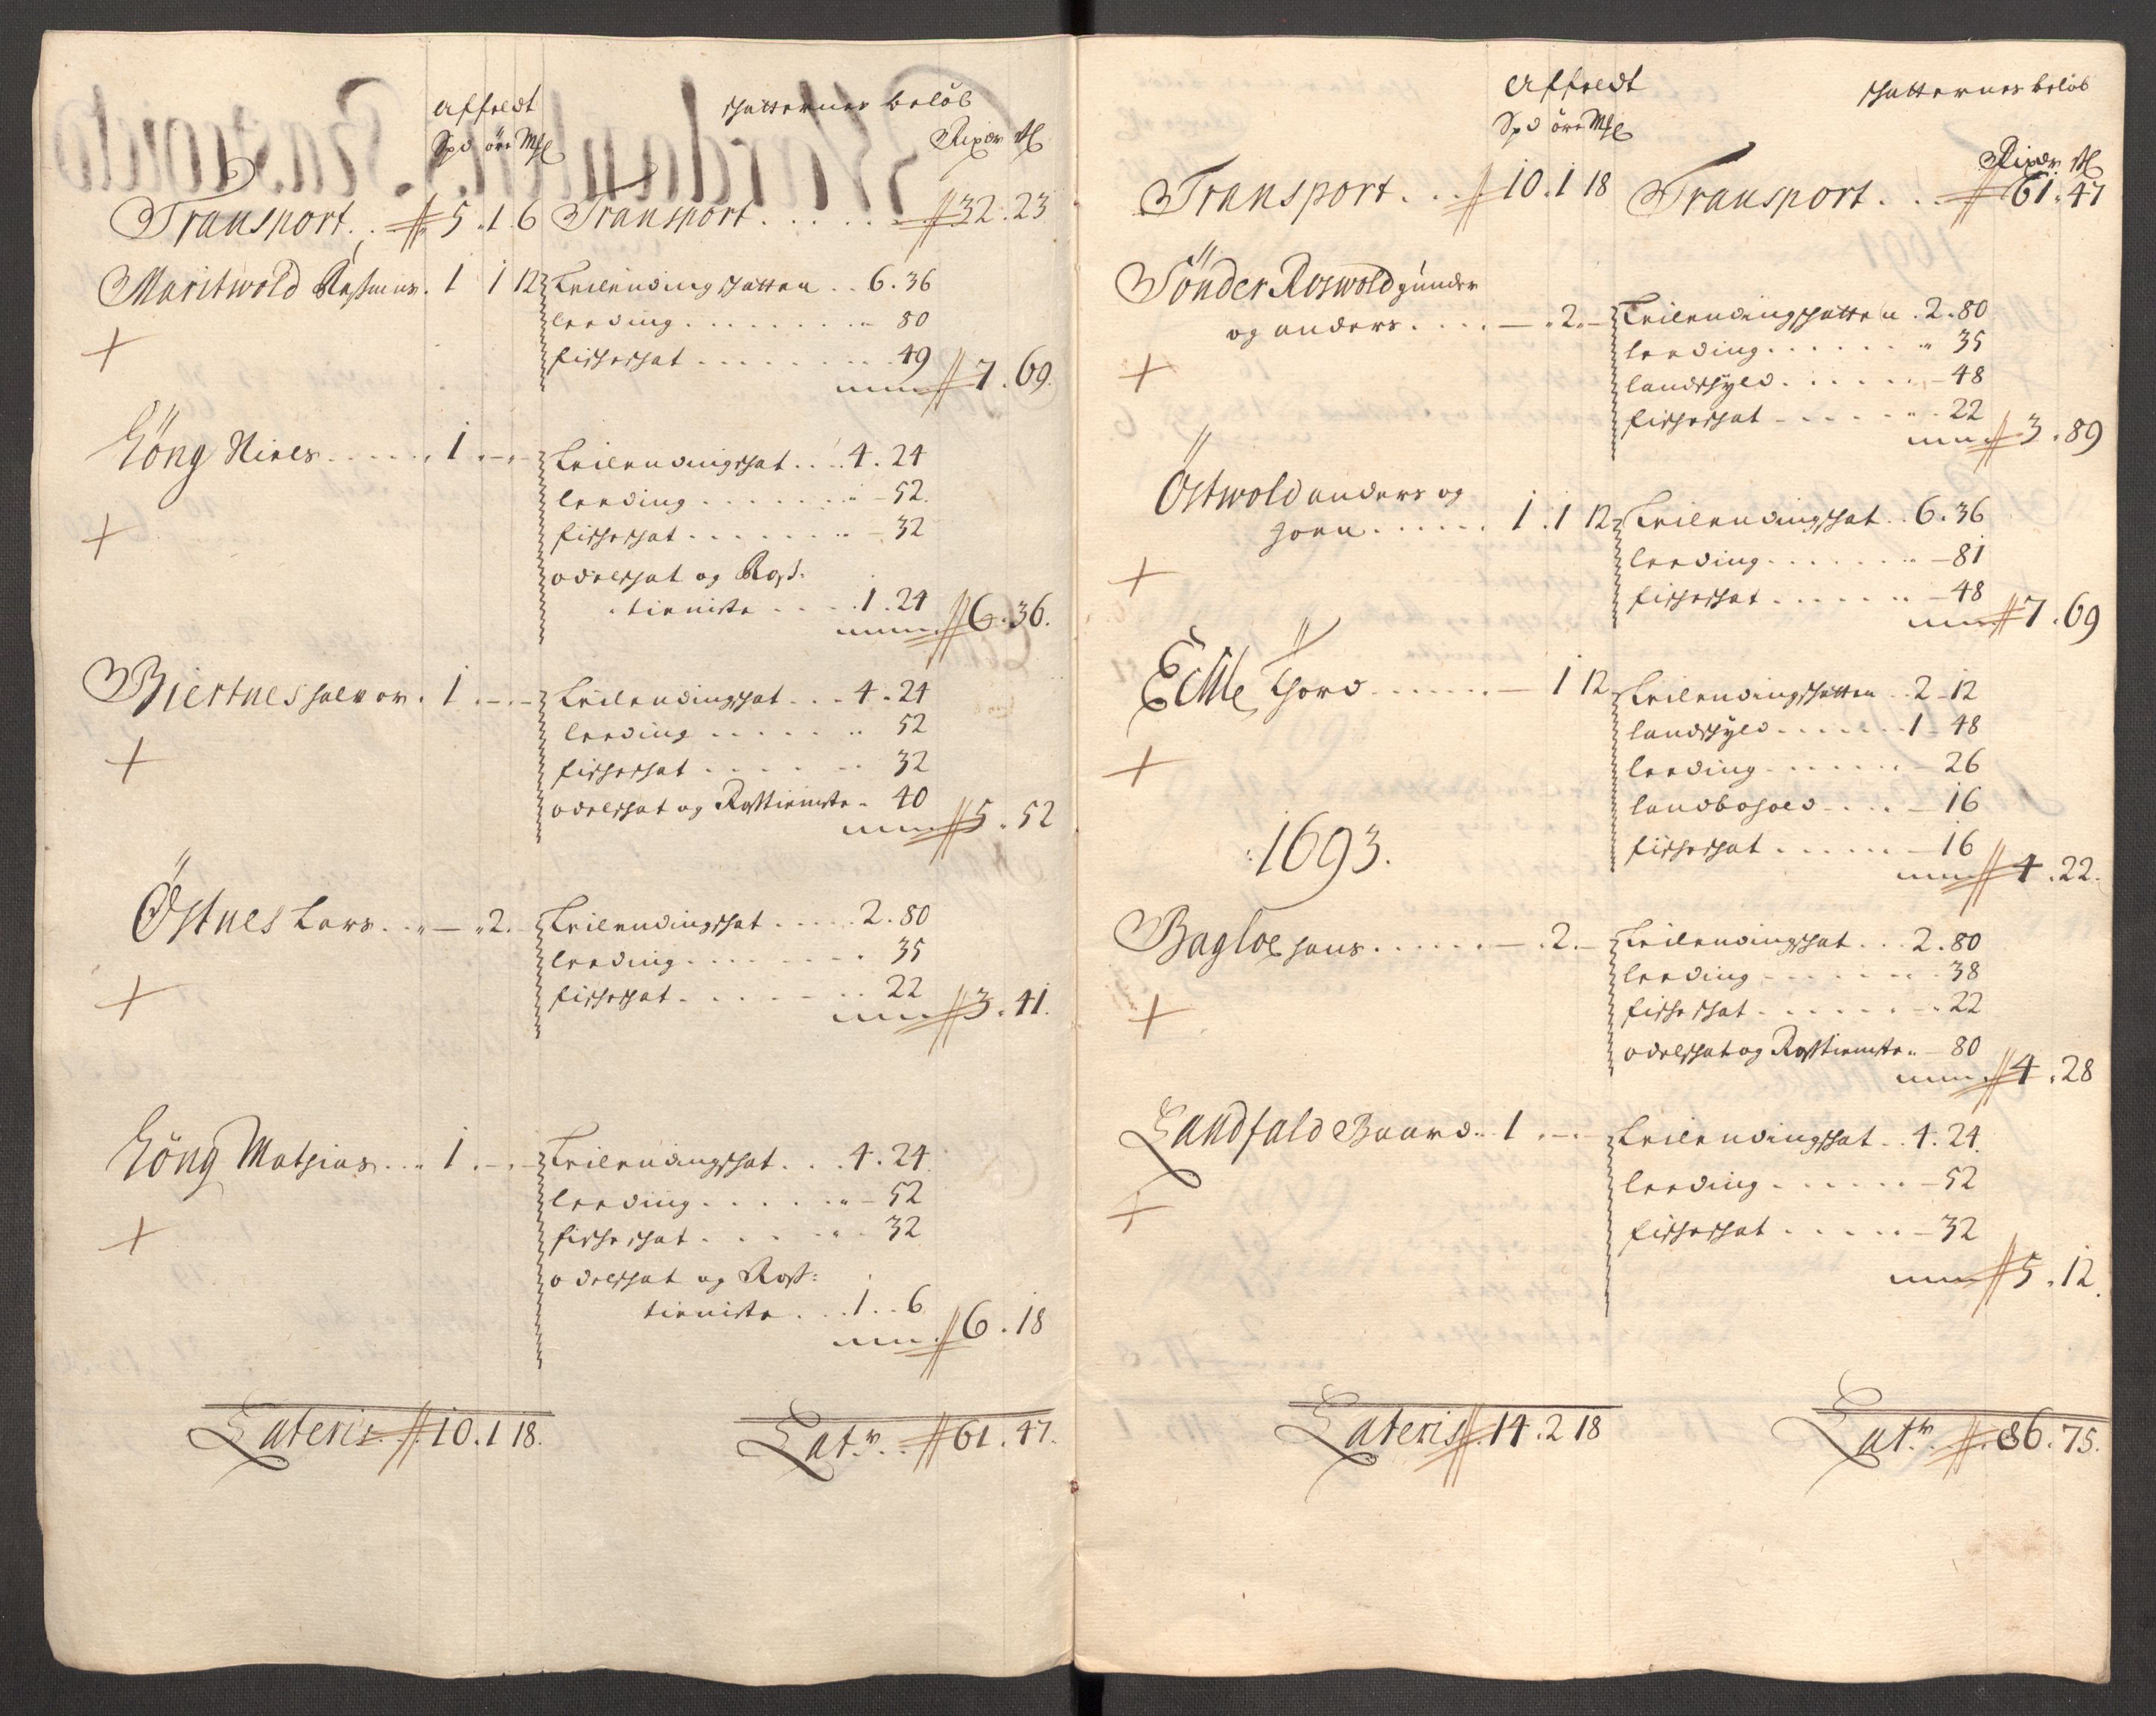 Affældt
Spd öre Mkl
schatternes beløb
Rixdr ß
Transport . . 5 . 1 . 6 Transport . . . . . . 32 . 23
Maritwold Rasmus . 1 1 12 Leilendingschatten . . 6 . 36
leeding . . . . . . . . . 80
fischeschat . . . . . . . . 49
7 . 69.
Göng Niels . . . . . 1 . - . - Leilendingschat . . . 4 . 24
leeding . . . . . . . - 52.
fischeschat . . . . . . . - 32
odelschat og Ross:
tieniste . . . . 1 . 24
6 . 36.
Biertnes halvor . 1 . - . - Leilendingschat . . . 4 . 24
leeding . . . . . . . 52
fischeschat . . . . . . 32
odelschat og Rosstieniste - 40
5 . 52
Östnes Lars . . . - . 2 . - Leilendingschat . . . . . 2 . 80
leeding . . . . . . . . 35
fischeschat . . . . . . . 22
3 . 41.
Göng Mathias . . . 1 . - . - Leilendingschat . . . 4 . 24.
leeding . . . . . . . - 52
fischeschat . . . . . . 32
odelschat og Ross:
tieniste . . . 1 . . 6
6 . 18
Lateris . 10 . 1 18. Latr . . 61 . 47.
Affældt
Spd öre Mkl
schatternes beløb
Rixdr ß
Transport . . . 10 . 1 18 Transport . . . 61 . 47
Sönder Roswold gunder
og anders . . . . - . 2 . - Leilendingschatten . 2 . 80
leeding . . . . . . . 35
landschyld . . . . . . - 48
fischeschat - . . . . . . 22
3 . 89
Östwold anders og
Joen . . . . . . 1 . 1 12 Leilendingschat . . 6 . 36
leeding . . . . . . . - 81
fischeschat . . . . . . - 48
7 . 69
Echle Thord . . . . . . - 1 12 Leilendingschatten . . 2 - 12
landschyld . . . . . . 1 - 48
leeding . . . . . . - 26
landbohold . . . . - 16
fischeschat . . . . . . - 16
4 . 22.
1693.
Bagloe hans . . . . . . - . 2 . - Leilendingschat . . . 2 . 80
leeding . . . . . . . . 38
fischeschat . . . . . . . 22
odelschat og Rosstieniste . - 80
4 . 28
Landfald Baard . . 1 . - . Leilendingschat . . 4 . 24.
leeding . . . . . . - 52
fischeschat . . . . . - 32
5 . 12.
Lateris . 14 . 2 18 Latr . . 86 . 75.